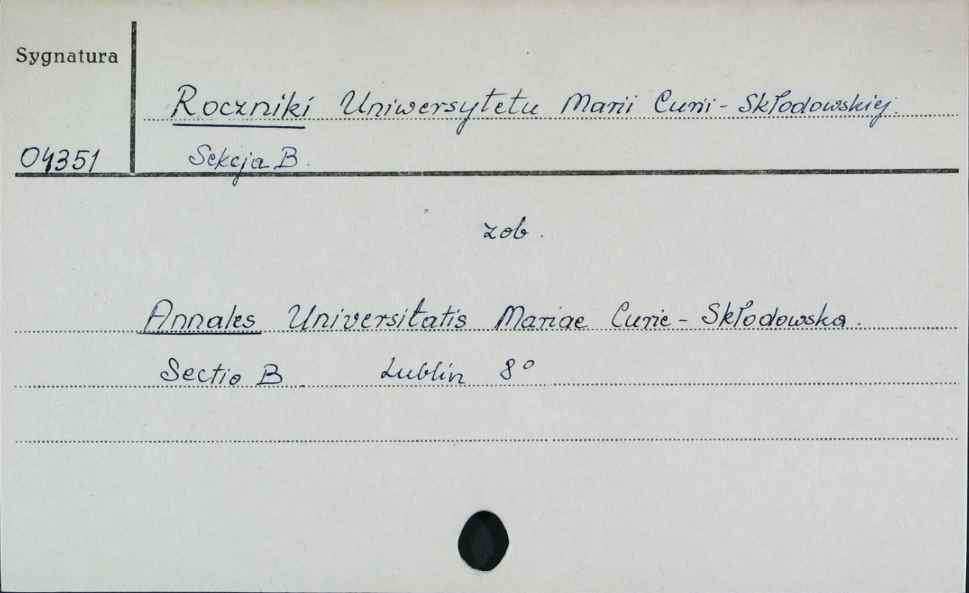 Sygnatura
Roczniki Uniwersytetu Marii Curii - Skłodowskiej.
04351
Sekcja B.
zob.
Annales Universitatis Mariae Curie - Skłodowska.
Sectio B Lublin 8°